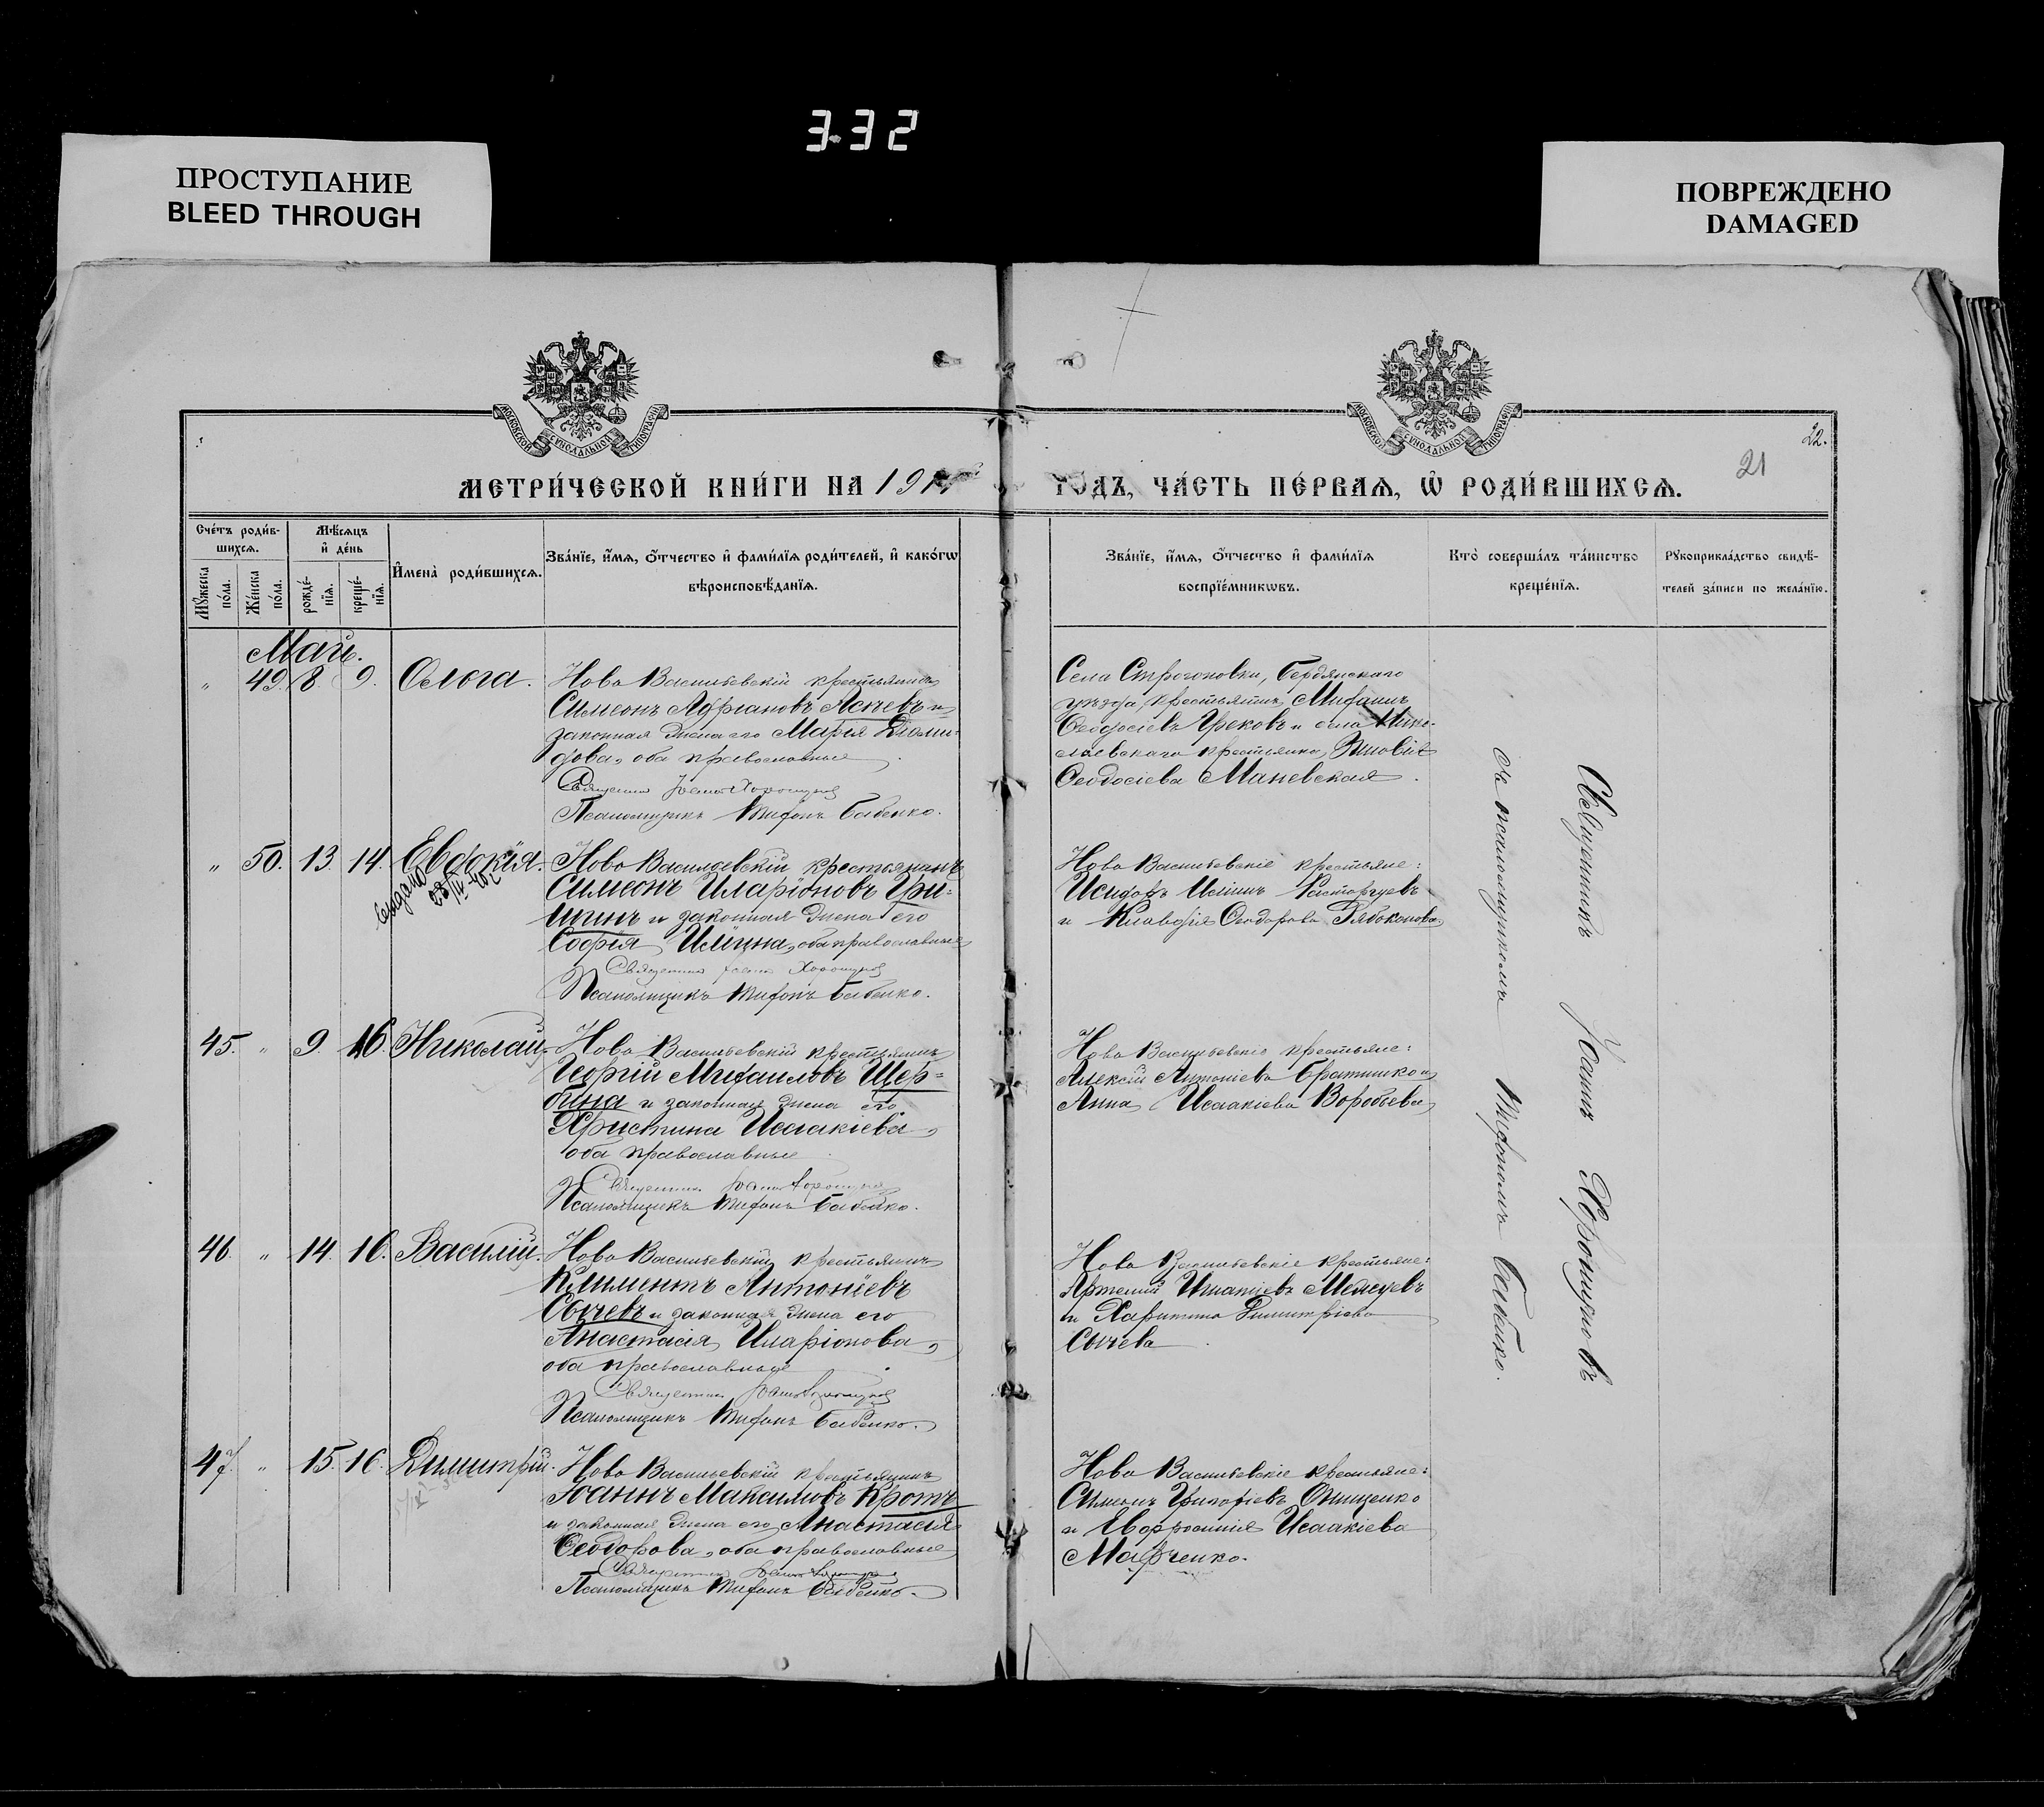 3.32
ПРОСТУПАНИЕ
BLEED THROUGH
ПОВРЕЖДЕНО
DAMAGED
МОСКОВСКОЙ СѴНОДАЛЬНОЙ ТИПОГРАФІИ
МОСКОВСКОЙ СѴНОДАЛЬНОЙ ТИПОГРАФІИ
22.
21
МЕТРИ́ЧЕСКОЙ КНИ́ГИ НА 191
ГО́ДЪ, ЧА́СТЬ ПЕ́РВАѦ, Ѡ҆ РОДИ́ВШИХСѦ.
Сче́тъ роди́в-
шихсѧ.
Мꙋ́жеска по́ла.
Же́нска по́ла.
Мѣ́сѧцъ
и҆ де́нь
рожде́-
нїѧ.
креще́-
нїѧ.
И҆мена̀ роди́вшихсѧ.
Зва́нїе, и҆́мѧ, ѻ҆́тчество и҆ фами́лїѧ роди́телей, и҆ како́гѡ
вѣроисповѣ́данїѧ.
Зва́нїе, и҆́мѧ, ѻ҆́тчество и҆ фами́лїѧ
воспрїе́мникѡвъ.
Кто̀ соверша́лъ та́инство
креще́нїѧ.
Рꙋкоприкла́дство свидѣ́-
телей за́писи по жела́нїю.
Май.
" 49. 8. 9. Ольга.
Ново Васильевскій крестьянинъ
Симеонъ Адріановъ Асычевъ и
законная жена его Марія Діоми-
дова, оба православные
Священник Іоанн Хорошунов
Псаломщикъ Трифонъ Бабенко.
Села Строгоновки, Бердянскаго
уѣзда крестьянинъ Михаилъ
Ѳеодосіевъ Грековъ и села Нико-
лаевскаго крестьянка Зиновія
Ѳеодосіева Маневская.
" 50. 13. 14. Евдокія.
Выдано
Ново Васильевскій крестьянинъ
Симеонъ Иларіоновъ Гри-
шинъ и законная жена его
Софія Ильина, оба православные
Священник Іоанн Хорошунов
Псаломщикъ Трифонъ Бабенко.
Ново Васильевскіе крестьяне:
Исидоръ Ильинъ Расторгуевъ
и Клавдія Ѳеодорова Рябоконова.
45. " 9. 16. Николай.
Ново Васильевскій крестьянинъ
Георгій Михаиловъ Щер-
бина и законная жена его
Христина Исаакіева,
оба православные
Священник Іоанн Хорошунов
Псаломщикъ Трифонъ Бабенко.
Ново Васильевскіе крестьяне:
Алексій Антоніевъ Братишко и
Анна Исаакіева Воробьева
46. " 14. 16. Василій.
Ново Васильевскій крестьянинъ
Климентъ Антоніевъ
Сычевъ и законная жена его
Анастасія Иларіонова,
оба православные
Священник Іоанн Хорошунов
Псаломщикъ Трифонъ Бабенко.
Ново Васильевскіе крестьяне:
Артемій Игнатіевъ
и Харитина Димитріева
Сычева
47. " 15. 16. Димитрій.
Ново Васильевскій крестьянинъ
Іоаннъ Максимовъ Кротъ
и законная жена его Анастасія
Ѳеодорова, оба православные
Священник Іоанн Хорошунов
Псаломщикъ Трифонъ Бабенко.
Ново Васильевскіе крестьяне:
Симеонъ Онищенко
и Евфросинія Исаакіева
Марченко.
Священникъ Іоаннъ Хорошуновъ
съ псаломщикомъ Трифономъ Бабенко.